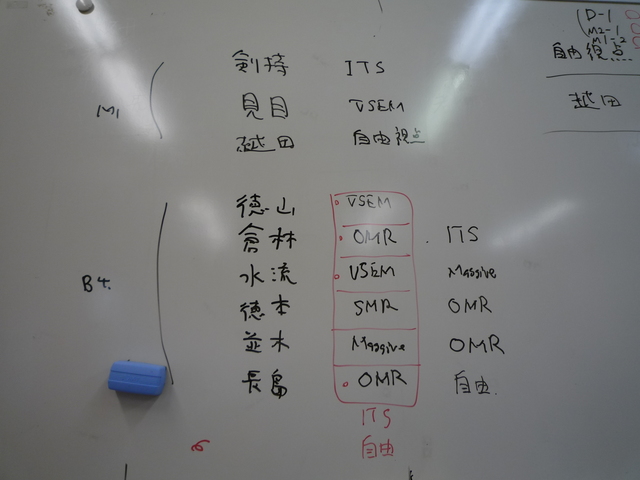 D-1
M2-1
M1-2
自由視点
越田
M1
剣持 ITS
見目 VSEM
越田 自由視点
B4.
徳山 VSEM
倉林 OMR . ITS
水流 VSEM Massive
徳本 SMR OMR
並木 Massive OMR
長島 OMR 自由.
ITS
自由